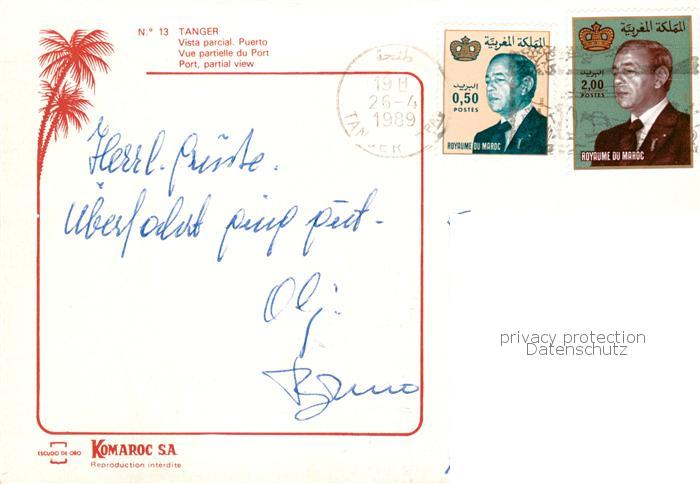 N.° 13 TANGER
Vista parcial. Puerto
Vue partielle du Port
Port, partial view
المملكة المغربية
البريد
0,50
POSTES
ROYAUME DU MAROC
المملكة المغربية
البريد
2,00
POSTES
ROYAUME DU MAROC
طنجة
19 H
26-4
1989
TANGER
Herrl. Grüsse.
Überfahrt ging gut-
Bruno
privacy protection
Datenschutz
ESCUDO DE ORO
KOMAROC S.A.
Reproduction interdite